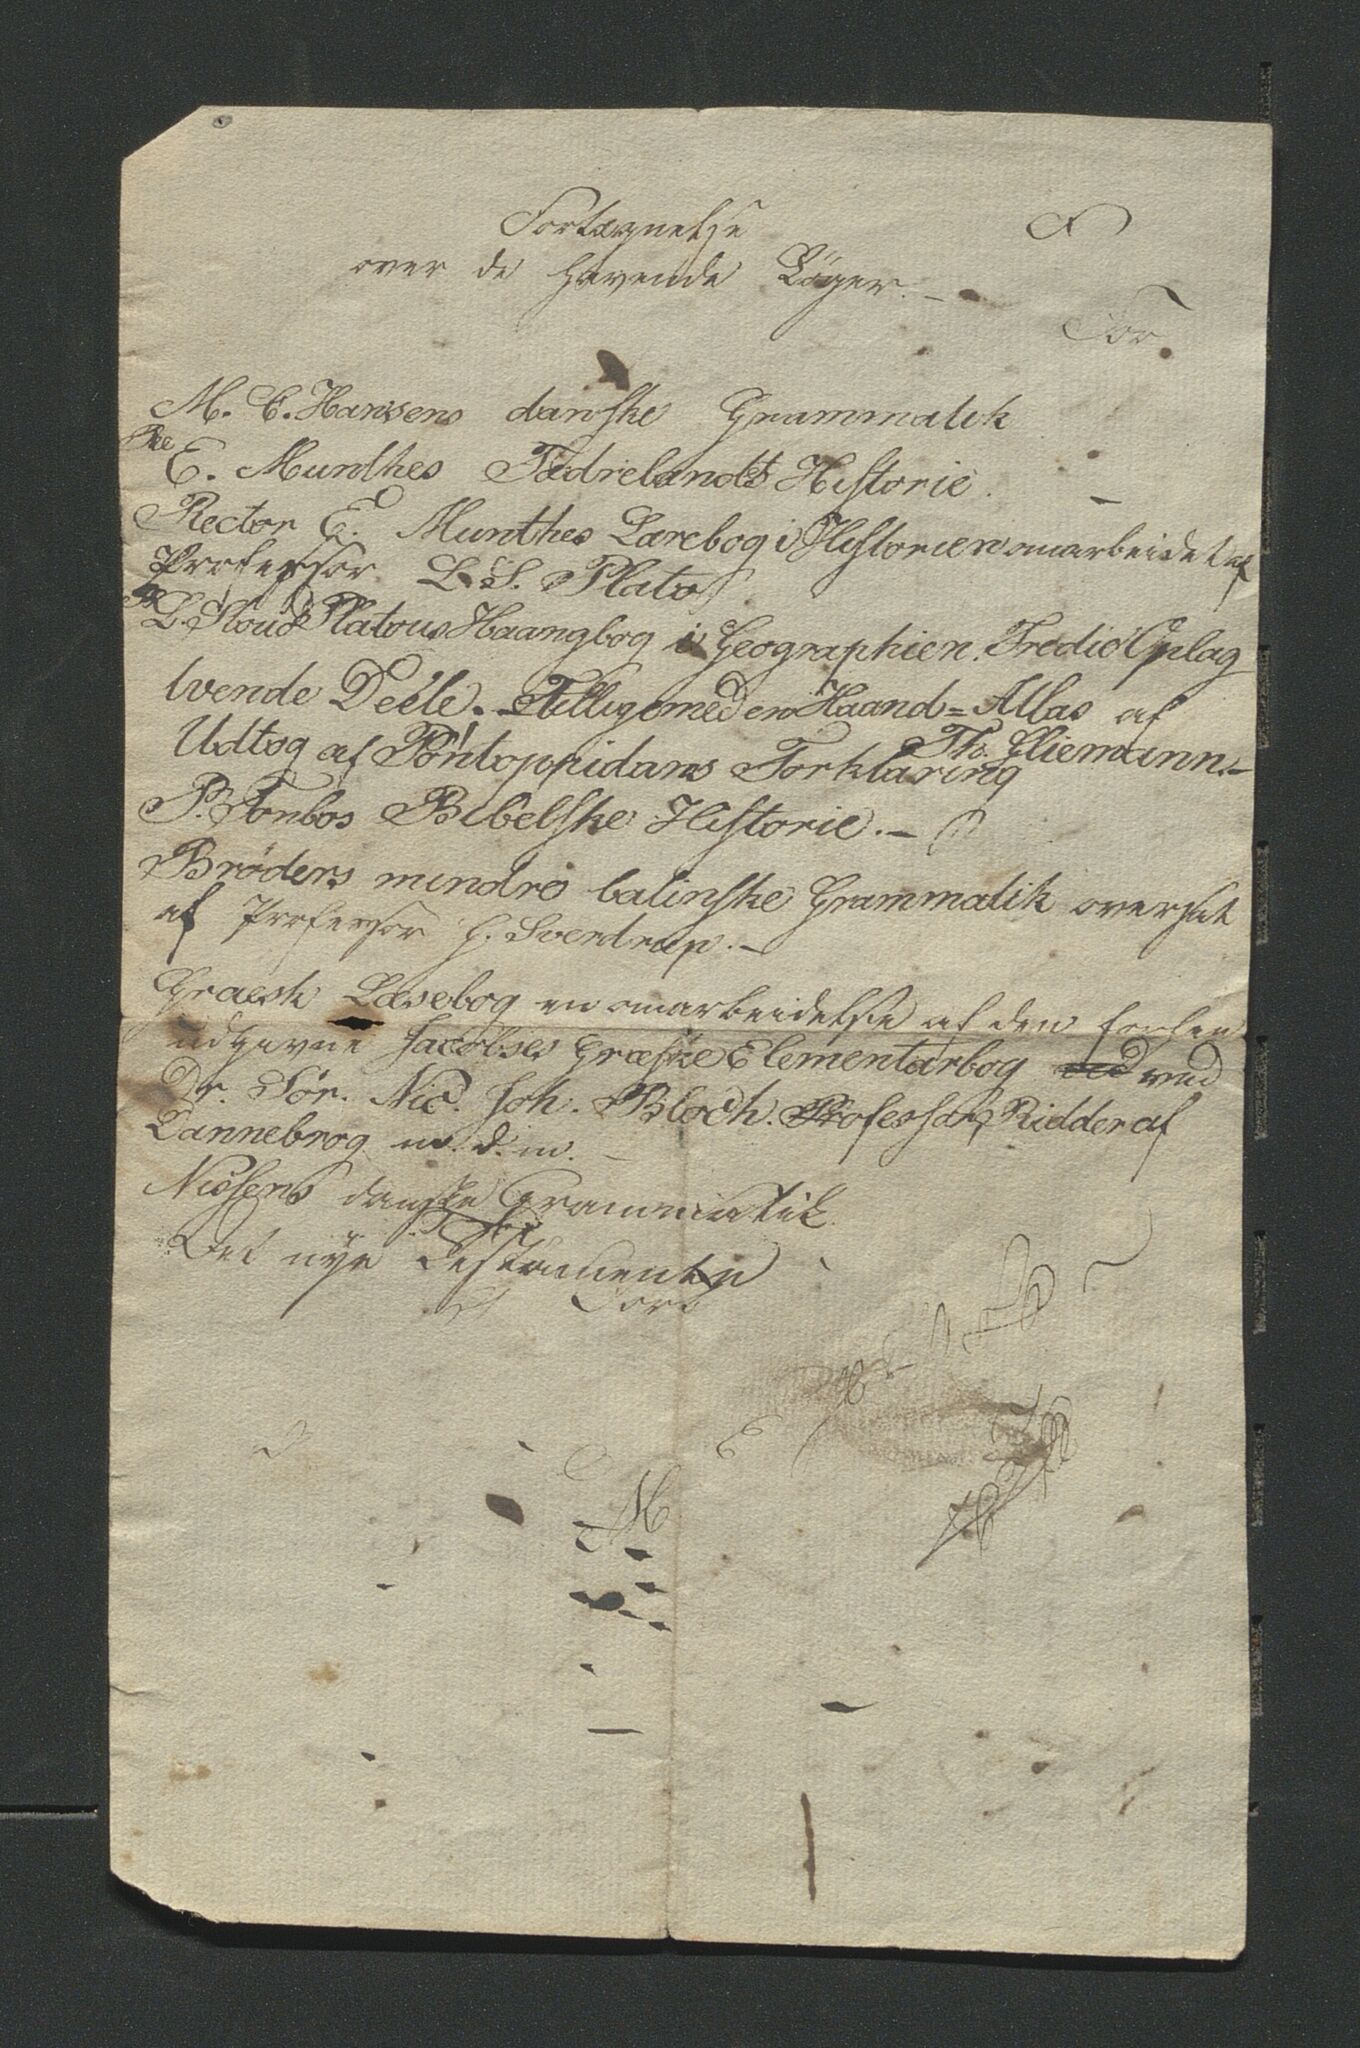 Fortægnelse
over de havende Bøger. –
For
M. C. Hansens danske Grammatik
E. Munthes Fædrelandets Historie.
Rector E. Munthes Lærebog i Historien omarbeidet af
Professor L. S. Plato
L. Stoud Platous Haangbog i Geographien. Tredie Oplag
tvende Deele. – Tilligemed en Haand=Atlas af
Th. Gliemann. –
Udtog af Pontoppidans Forklaring
P. Fonbos Bibelske Historie. –
Brøders mindre latinske Grammatik oversat
af Professor G. Sverdrup. –
Graesk Læsebog en omarbeidelse af den forhen
udgivne Jacobses Græske Elementarbog ved
Dr. Sør. Nic. Joh. Bloch. Professor, Ridder af
Dannebrog m. d. m. –
Nissens danske Grammatik
Det nye Testamente
For
M